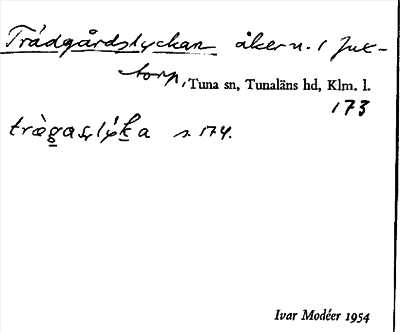 Trädgårdslyckan åker n. 1 Jux-
torp, Tuna sn, Tunaläns hd, Klm. l.
173
trä̀gaslýka s. 174.
Ivar Modéer 1954